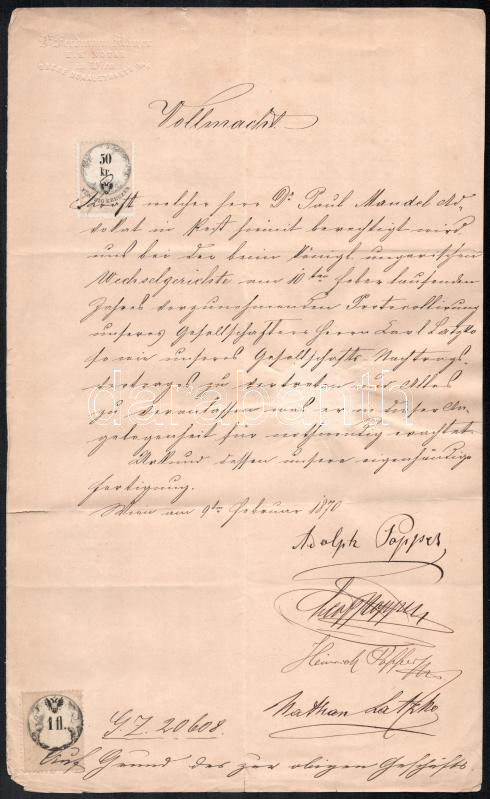 Vollmacht
50
kr.
Kraft welcher Herr Dr. Paul Mandel Ad-
vokat in Pest hiemit berechtigt wird
uns bei der beim königl. ungarischen
Wechselgerichte am 10ten Feber laufenden
Jahres vorzunehmenden Protocollirung
unseres Gesellschafters Herrn Carl Latzko
so wie unseres Gesellschafts-Nachtrags-
Vertrages zu vertreten und Alles
zu veranlassen was er in dieser An-
gelegenheit für nothwendig erachtet.
Urkund dessen unsere eigenhändige
Fertigung.
Wien am 9ten Februar 1870
Adolph Popper
Heinrich Popper
Nathan Latzko
1 fl.
G.Z. 20608.
Auf Grund des zur obigen Geschäfts
darabanth